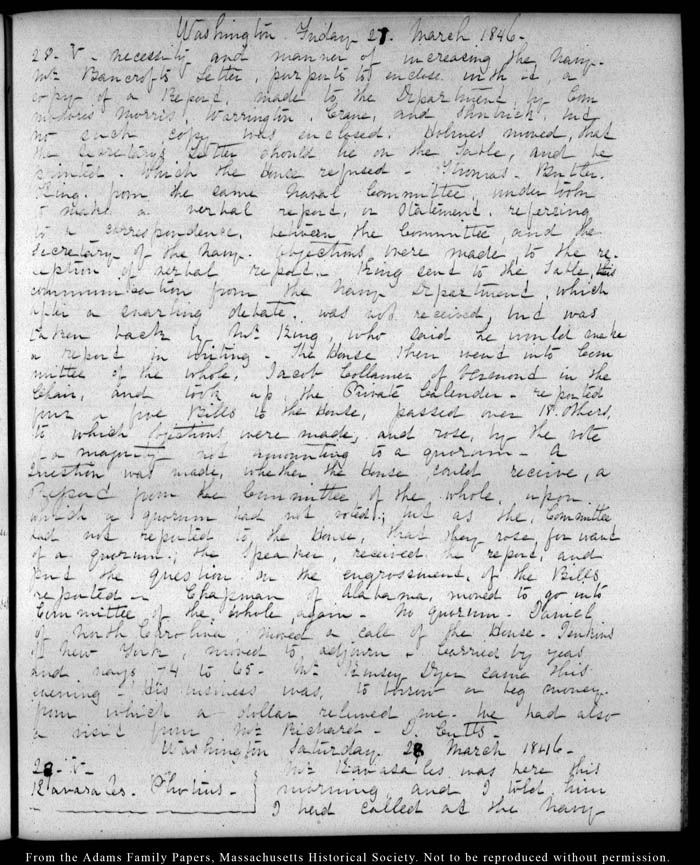 Washington Friday 27. March 1846.
28. V. necessity and manner of increasing the Navy.
Mr Bancroft's Letter, purports to enclose with it, a
copy of a Report, made to the Department, by Com
modores Morris, Warrington, Crane, and Shubrick, but
no such copy was enclosed. Holmes moved, that
the Secretary's Letter should lie on the Table, and be
printed. which the House refused – Thomas Butler
King from the same Naval Committee, undertook
to make a verbal report, or Statement, referring
to a correspondence, between the Committee, and the
Secretary of the Navy. Objections were made, to the re-
ception of verbal report. King sent to the Table, this
communication from the Navy Department, which
after a snarling debate, was not received, but was
taken back by Mr King, who said he would make
a report in writing – The House then went into Com
mittee of the whole, Jacob Collamer of Vermont in the
Chair, and took up, the Private Calender – reported
four or five Bills to the House, passed over 18 others,
to which objections were made, and rose, by the vote
of a majority not amounting to a quorum – A
question was made, whether the House could receive, a
Report from the Committee of the whole, upon
which a quorum had not voted; but as the Committee
had not reported to the House, that they rose, for want
of a quorum; the Speaker, received the report, and
put the question on the engrossment, of the Bills,
reported – Chapman of Alabama, moved to go into
Committee of the whole again – No quorum – Daniel
of North Carolina, moved a call of the House – Jenkins
of New York, moved to adjourn – carried by yeas
and nays 74 to 65 – Mr Kinsey Dyer came this
evening – His business was, to borrow or beg money.
from which a dollar relieved me. We had also
a visit from Mr Richard D. Cutts –
Washington Saturday. 28 March 1846 –
28. V –
Kavasales. Photius –
Mr Kavasales was here this
morning and I told him
I had called at the Navy
From the Adams Family Papers, Massachusetts Historical Society. Not to be reproduced without permission.